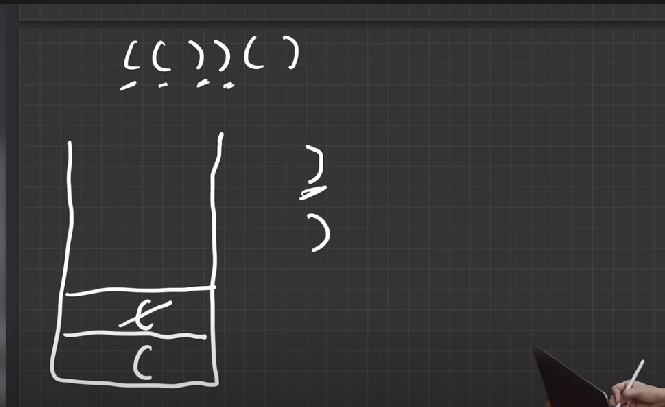 (())()
)
)
(
(